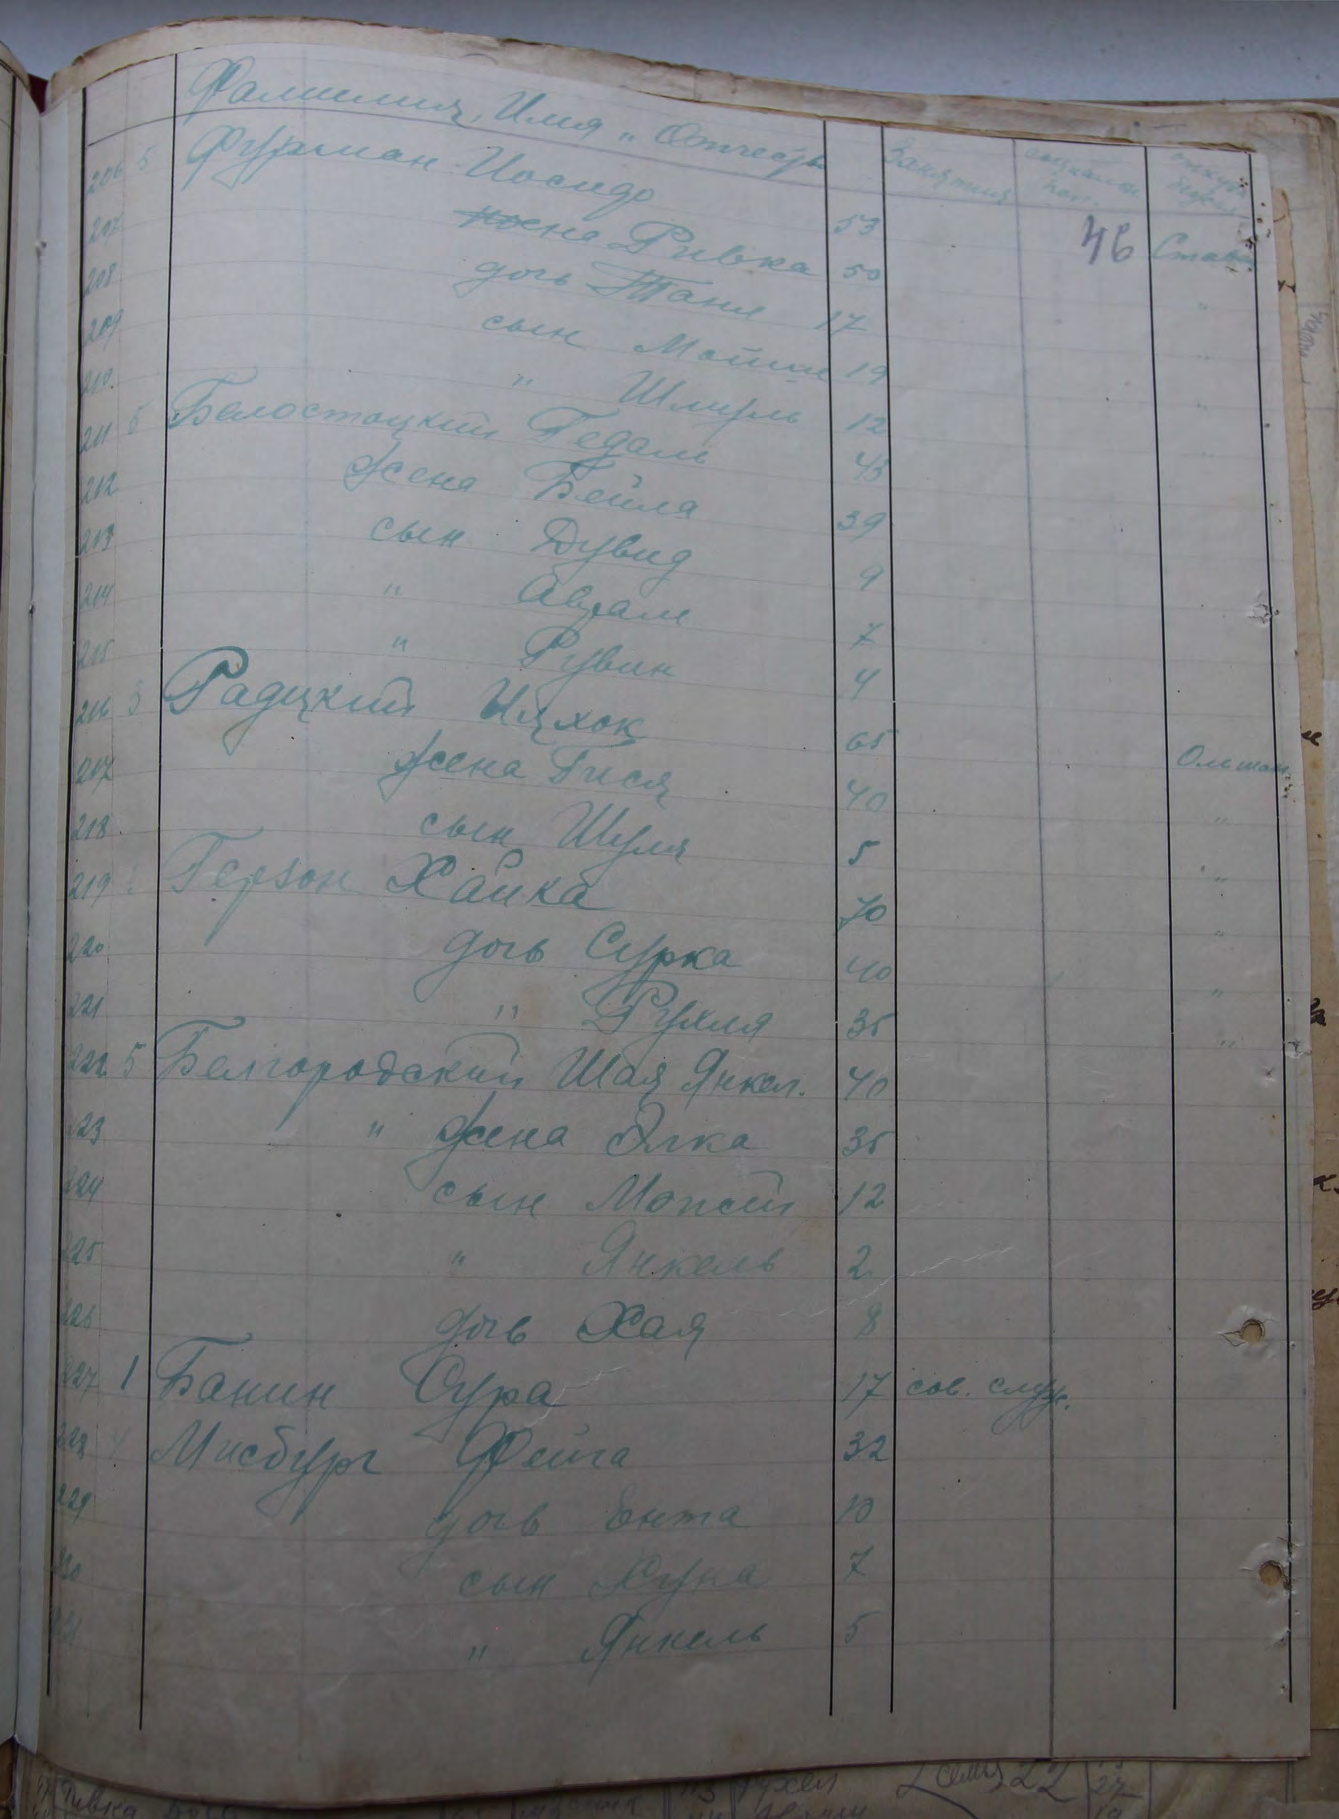 Фамилия, Имя и Отчество Занятия откуда
46
206 5 Фурман Иосифо 53 Став
207 жена Ривка 50 "
208 дочь Таня 17 "
209 сын Мойше 19 "
210. " Шмуль 12 "
211 5 Белостоцкий Гедаль 43
212 Жена Бейла 39
213 сын Дувид 9
214 " Аврам 7
215 " Рувин 4
216 3 Радецкий Ицхок 65
217 жена Гися 40 "
218 сын Шуля 5 "
219 Герзон Хайка 70 "
220 дочь Сурка 40 "
221 " Рухля 35 "
222 5 Белгородский Шая Янкел. 40
223 " жена Элка 35
224 сын Мойсей 12
225 " Янкель 2
226 дочь Хая 8
227 1 Банин Сура 17 сов. служ.
228 4 Мисбург Фейга 32
229 дочь Ента 10
230 сын 7
231 " Янкель 5